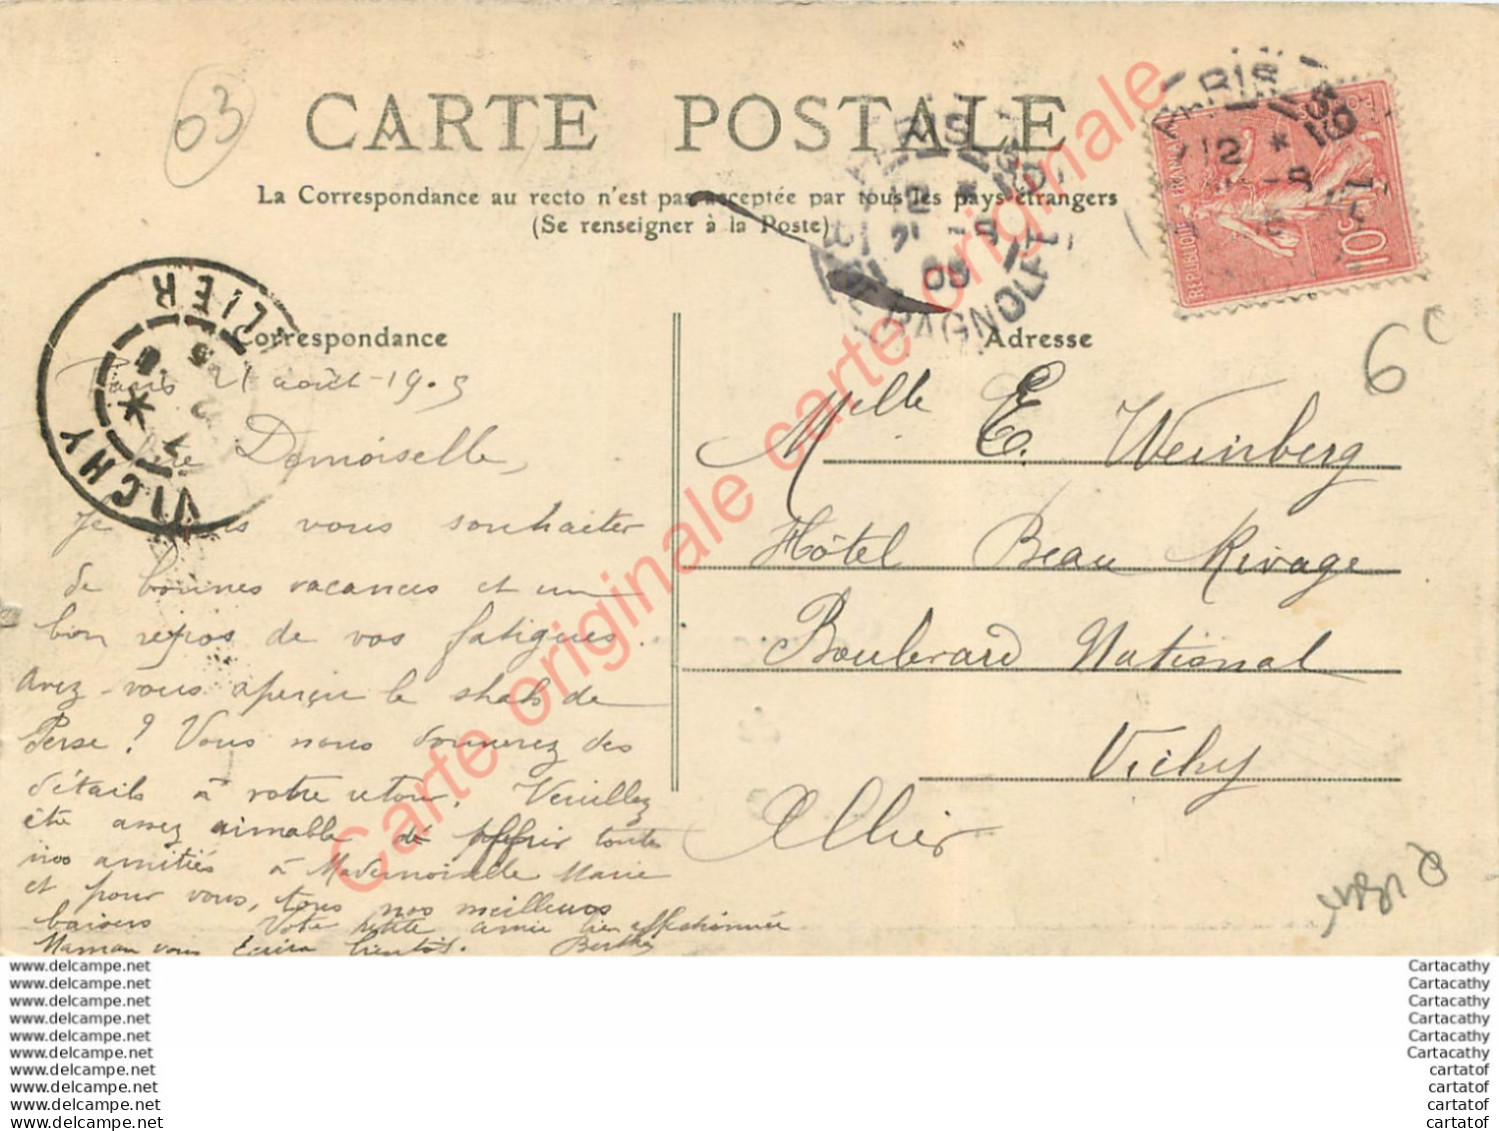 03
CARTE POSTALE
La Correspondance au recto n'est pas acceptée par tous les pays étrangers
(Se renseigner à la Poste)
PARIS
12
05
PAGNOLET
PARIS
12
REPUBLIQUE FRANÇAISE
POSTES
10c
6c
VICHY
ALLIER
Correspondance
Paris 21 août 1905
Chère Demoiselle,
Je vous souhaiter
de bonnes vacances et un
bon repos de vos fatigues.
Avez-vous aperçu le shah de
Perse ? Vous nous donnerez des
détails à votre retour. Veuillez
être assez aimable de offrir toutes
nos amitiés à Mademoiselle Marie
et pour vous, tous nos meilleurs
baisers Votre petite amie bien affectionnée
Maman vous écrira bientôt. Berthe
Adresse
Melle E. Weinberg
Hôtel Beau Rivage
Boulevard National
Vichy
Allier
Carte originale carte originale carte originale
www.delcampe.net
www.delcampe.net
www.delcampe.net
www.delcampe.net
www.delcampe.net
www.delcampe.net
www.delcampe.net
www.delcampe.net
www.delcampe.net
www.delcampe.net
Cartacathy
Cartacathy
Cartacathy
Cartacathy
Cartacathy
Cartacathy
cartatof
cartatof
cartatof
cartatof